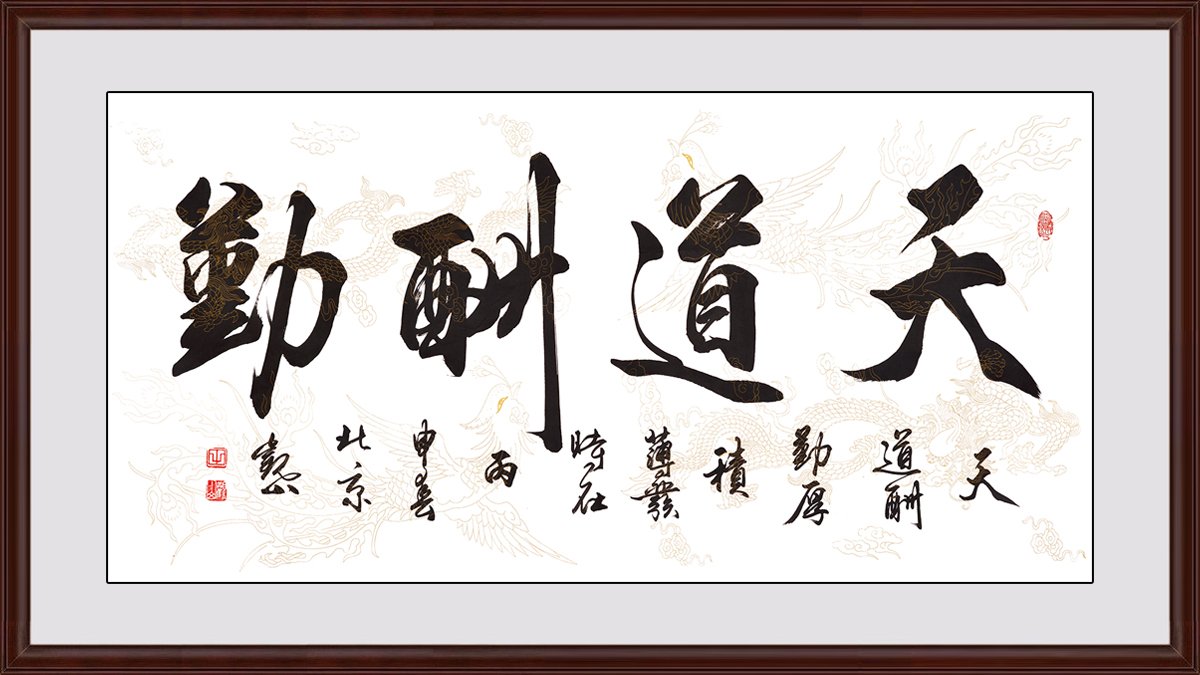 天道酬勤
天道酬勤厚積薄發時在丙申春北京